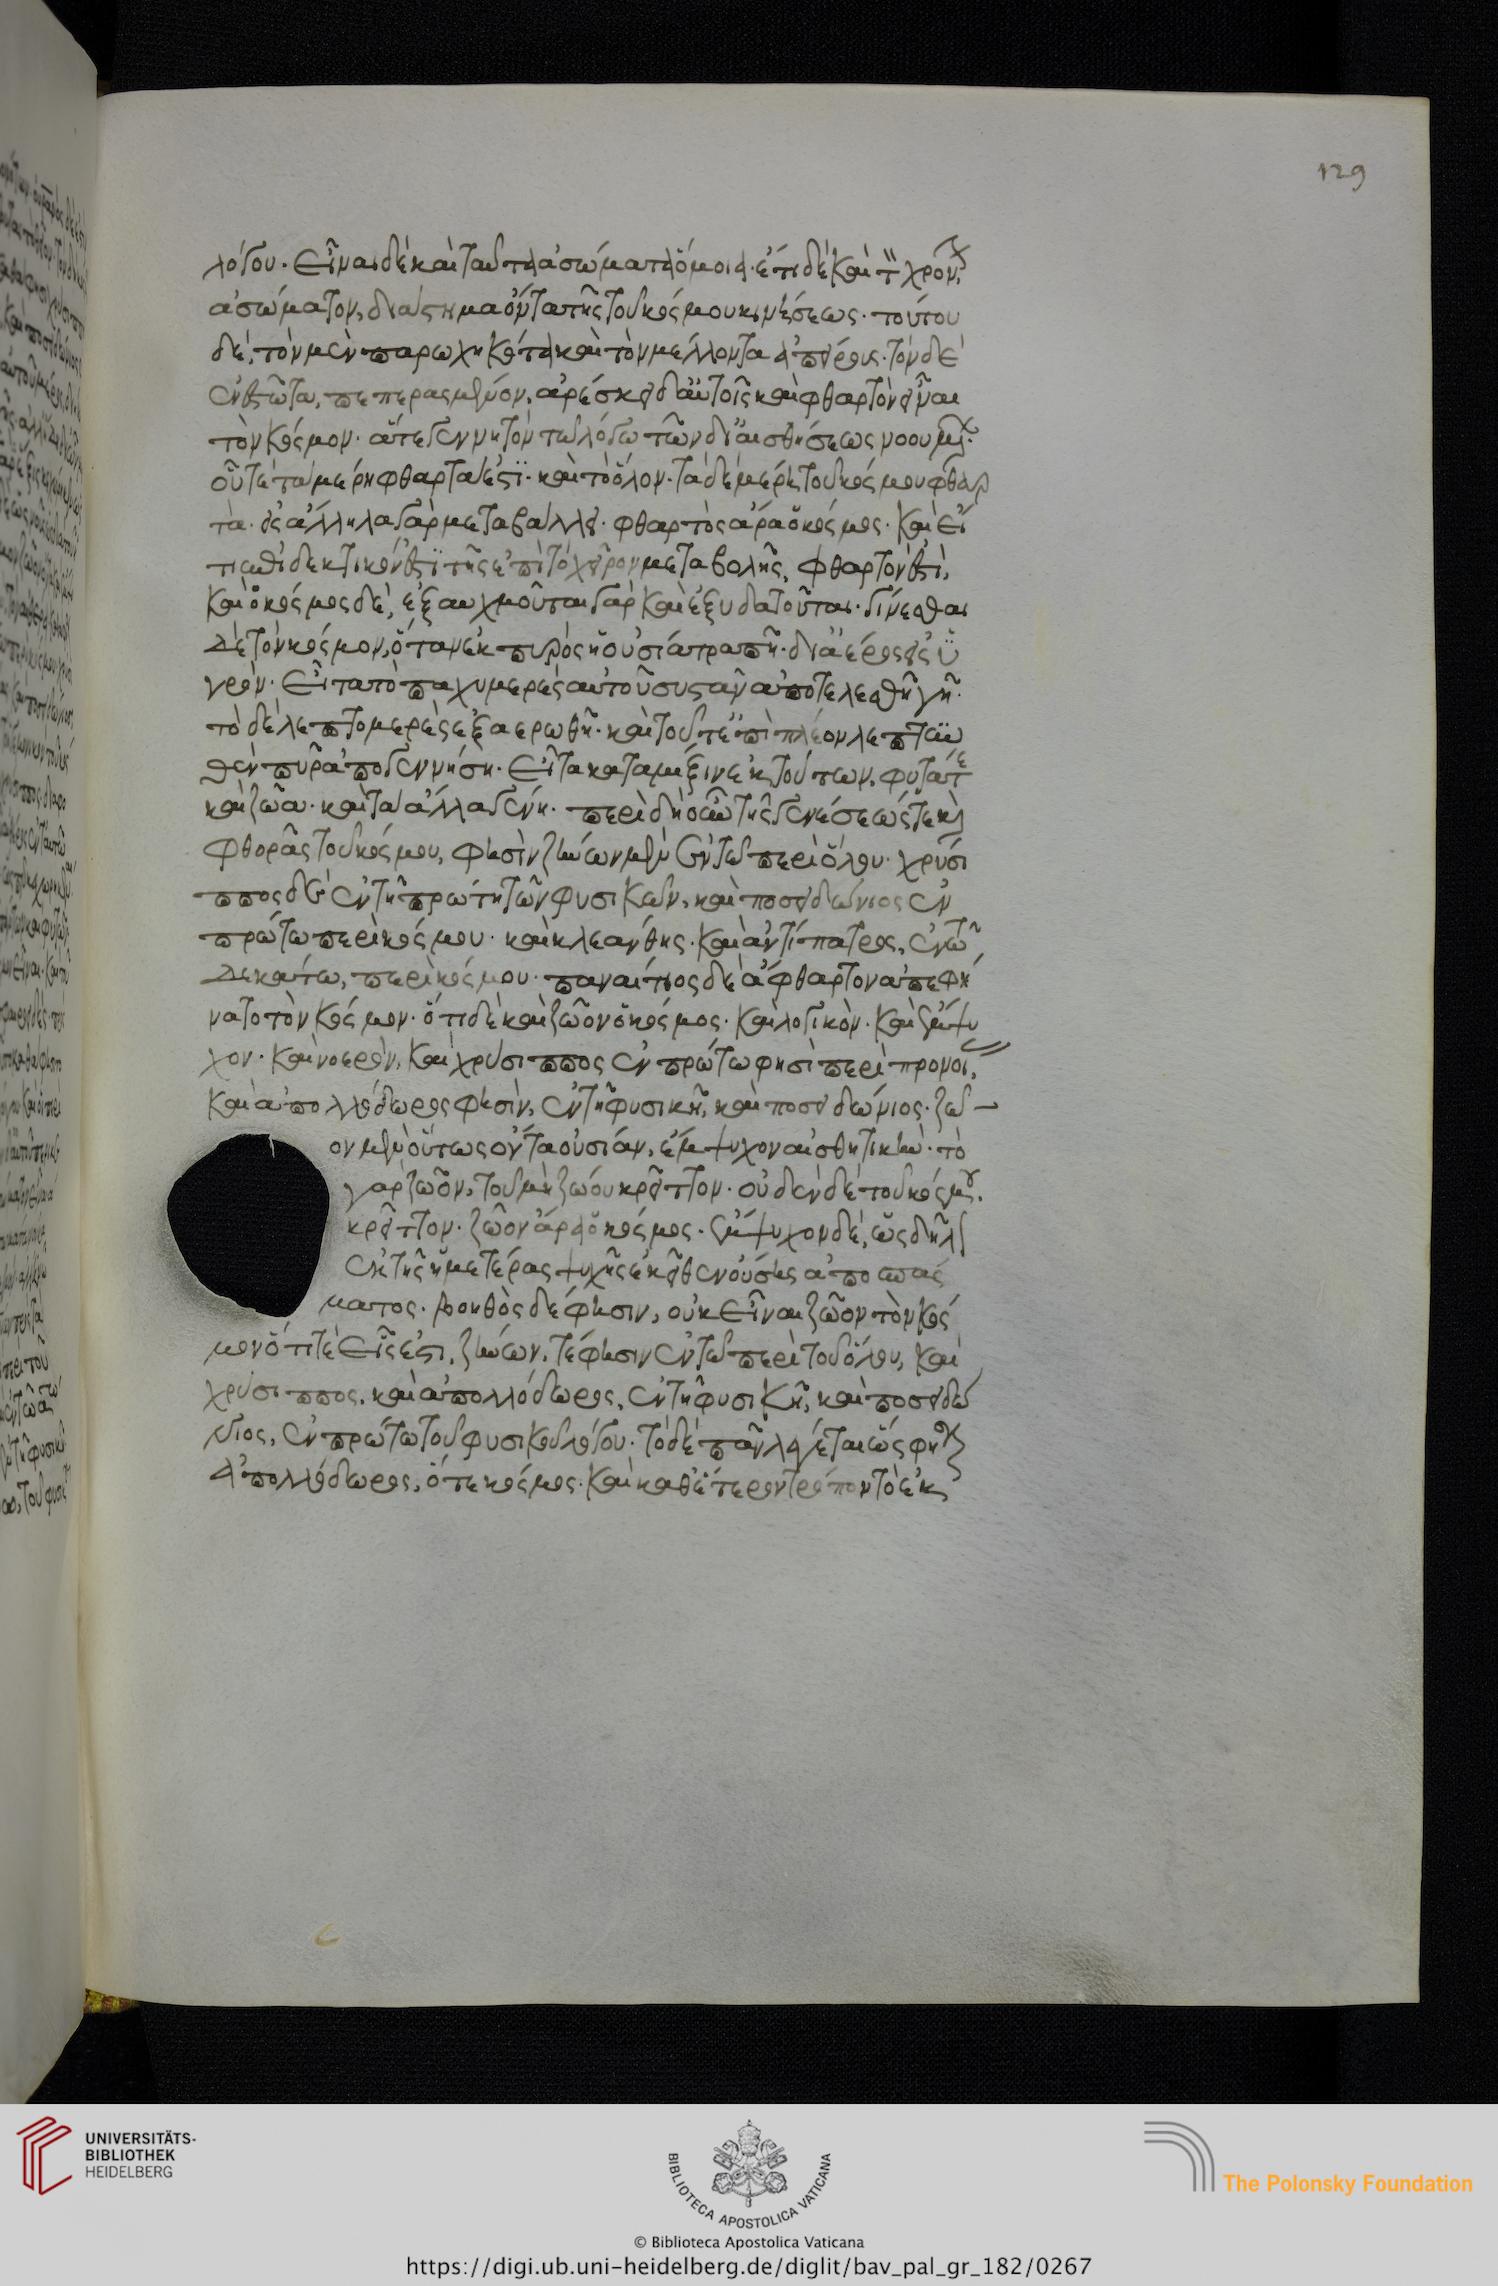 129
λόγου. εἶναι δὲ καὶ ταῦτα ἀσώματα ὅμοια. ἔτι δὲ καὶ τὸν χρόνον
ἀσώματον, διάστημα ὄντα τῆς τοῦ κόσμου κινήσεως. τούτου
δὲ, τὸν μὲν παρωχηκότα καὶ τὸν μέλλοντα ἀπείρους. τὸν δὲ
ἐνεστῶτα, πεπερασμένον. ἀρέσκει δ' αὐτοῖς καὶ φθαρτὸν εἶναι
τὸν κόσμον. ἅτε γεννητὸν τῶ λόγω τῶν δι' αἰσθήσεως νοουμένων.
οὗ τε τὰ μέρη φθαρτά ἐστι. καὶ τὸ ὅλον. τὰ δὲ μέρη τοῦ κόσμου φθαρ
τὰ. εἰς ἄλληλα γὰρ μεταβάλλει. φθαρτὸς ἄρα ὁ κόσμος. καὶ εἴ
τι ἐπιδεκτικόν ἐστι τῆς ἐπὶ τὸ χεῖρον μεταβολῆς, φθαρτόν ἐστι,
καὶ ὁ κόσμος δὲ, ἐξαυχμοῦται γὰρ καὶ ἐξυδατοῦται. γίνεσθαι
δὲ τὸν κόσμον, ὅταν ἐκ πυρὸς ἡ οὐσία τραπῆ. δι' ἀέρος εἰς ὑ
γρόν. εἶτα τὸ παχυμερὲς αὐτοῦ συστὰν ἀποτελεσθῆ γῆ.
τὸ δὲ λεπτομερὲς ἐξαερωθῆ. καὶ τοῦτ' ἐπὶ πλέον λεπτυν
θὲν πῦρ ἀπογεννήση. εἶτα κατὰ μίξιν ἐκ τούτων, φυτά τε
καὶ ζῶα. καὶ τὰ ἄλλα γένη. περὶ δὴ οὖν τῆς γενέσεώς τε καὶ
φθορᾶς τοῦ κόσμου, φησὶν ζήνων μὲν ἐν τῶ περὶ ὅλου. χρύσι
ππος δὲ ἐν τῆ πρώτη τῶν φυσικῶν, καὶ ποσειδώνιος ἐν
πρώτω περὶ κόσμου. καὶ κλεάνθης. καὶ ἀντίπατρος, ἐν τῶ
δεκάτω, περὶ κόσμου. παναίτιος δὲ ἄφθαρτον ἀπεφή
νατο τὸν κόσμον. ὅτι δὲ καὶ ζῶον ὁ κόσμος. καὶ λογικὸν. καὶ ἔμψυ
χον. καὶ νοερὸν, καὶ χρύσιππος ἐν πρώτω φησὶ περὶ προνοίας,
καὶ ἀπολλόδωρος φησὶν, ἐν τῆ φυσικῆ, καὶ ποσειδώνιος. ζῶ
ον μὲν οὕτως ὄντα οὐσίαν, ἔμψυχον αἰσθητικήν. τὸ
γὰρ ζῶον, τοῦ μὴ ζώου κρεῖττον. οὐδὲν δὲ τοῦ κόσμου.
κρεῖττον. ζῶον ἄρα ὁ κόσμος. ἔμψυχον δὲ, ὡς δῆλον
ἐκ τῆς ἡμετέρας ψυχῆς ἐκεῖθεν οὔσης ἀποσπάσ
ματος. βοηθὸς δέ φησιν, οὐκ εἶναι ζῶον τὸν κόσ
μον ὅτι τὲ εἷς ἐστι, ζήνων, τέ φησιν ἐν τῶ περὶ τοῦ ὅλου, καὶ
χρύσιππος, καὶ ἀπολλόδωρος, ἐν τῆ φυσικῆ, καὶ ποσειδώ
νιος, ἐν πρώτω τοῦ φυσικοῦ λόγου. τὸ δὲ πᾶν λέγεται ὥς φησιν
ἀπολλόδωρος, ὅ τε κόσμος. καὶ καθ' ἕτερον τρόπον τὸ ἐκ
UNIVERSITÄTS-
BIBLIOTHEK
HEIDELBERG
BIBLIOTECA APOSTOLICA VATICANA
The Polonsky Foundation
© Biblioteca Apostolica Vaticana
https://digi.ub.uni-heidelberg.de/diglit/bav_pal_gr_182/0267